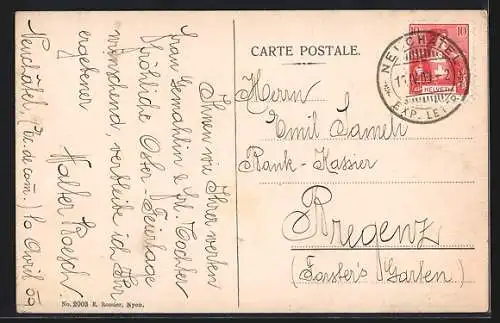 CARTE POSTALE.
Ihnen wie Ihrer werten
Frau Gemahlin & frl. Tochter
fröhliche Oster-Feiertage
wünschend, verbleibe ich Ihr
ergebener
Walter Bosch.
Neuchâtel,
10 Avril 09
Herrn
Emil Sameli
Bank-Kassier
Bregenz
(Forster's Garten)
10
HELVETIA
NEUCHÂTEL
EXP. LET.
No. 2903 E. Rossier, Nyon.